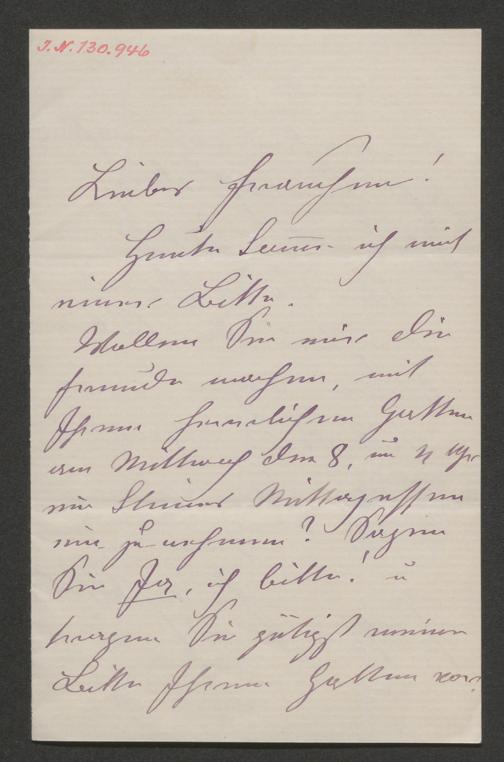 I.N. 130.946
Liebes Frauchen!
Heute komme ich mit
einer Bitte.
Wollen Sie mir die
Freude machen, mit
Ihrem herrlichen Gatten
am Mittwoch den 8, um 4 Uhr
ein kleines Mittagessen
ein zu nehmen? Sagen
Sie Ja, ich bitte! u
tragen Sie gütigst meine
Bitte Ihrem Gatten vor.